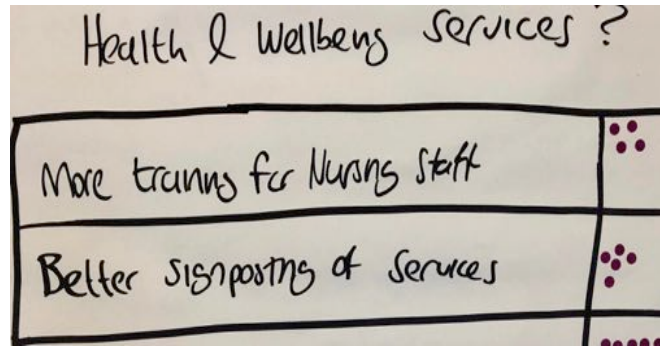 Health & Wellbeing Services?
More training for Nursing Staff
Better signposting of Services